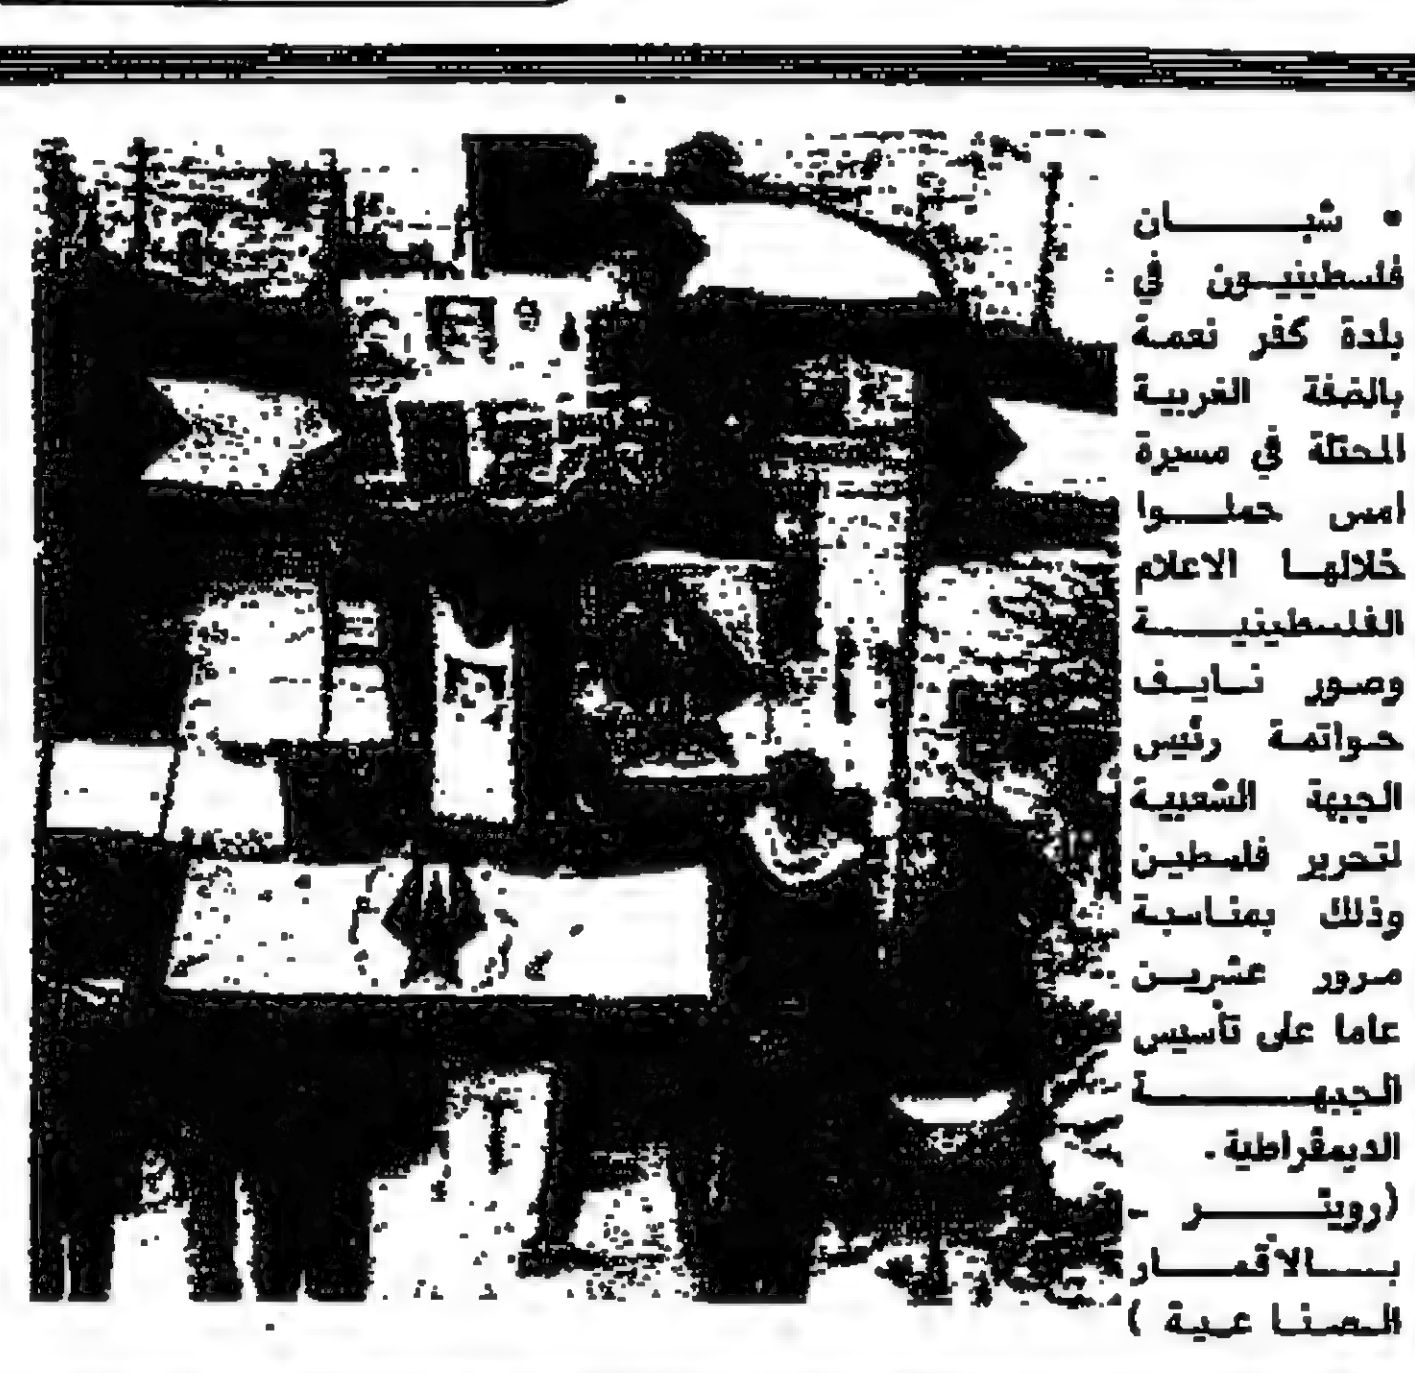 • شبــــــان
فلسطينيــون في
بلدة كفر نعمة
بالضفة الغربية
المحتلة في مسيرة
امس حملــوا
خلالهـا الاعلام
الفلسطينيــــة
وصور نـايـف
حـواتمـة رئيس
الجبهة الشعبية
لتحرير فلسطيـن
وذلك بمنـاسبـة
مـرور عشريـن
عاما على تأسيس
الجبهــــــــة
الديمقراطية .
(رويتــــــر -
بـــالاقمـــار
الـصنـا عيـة )